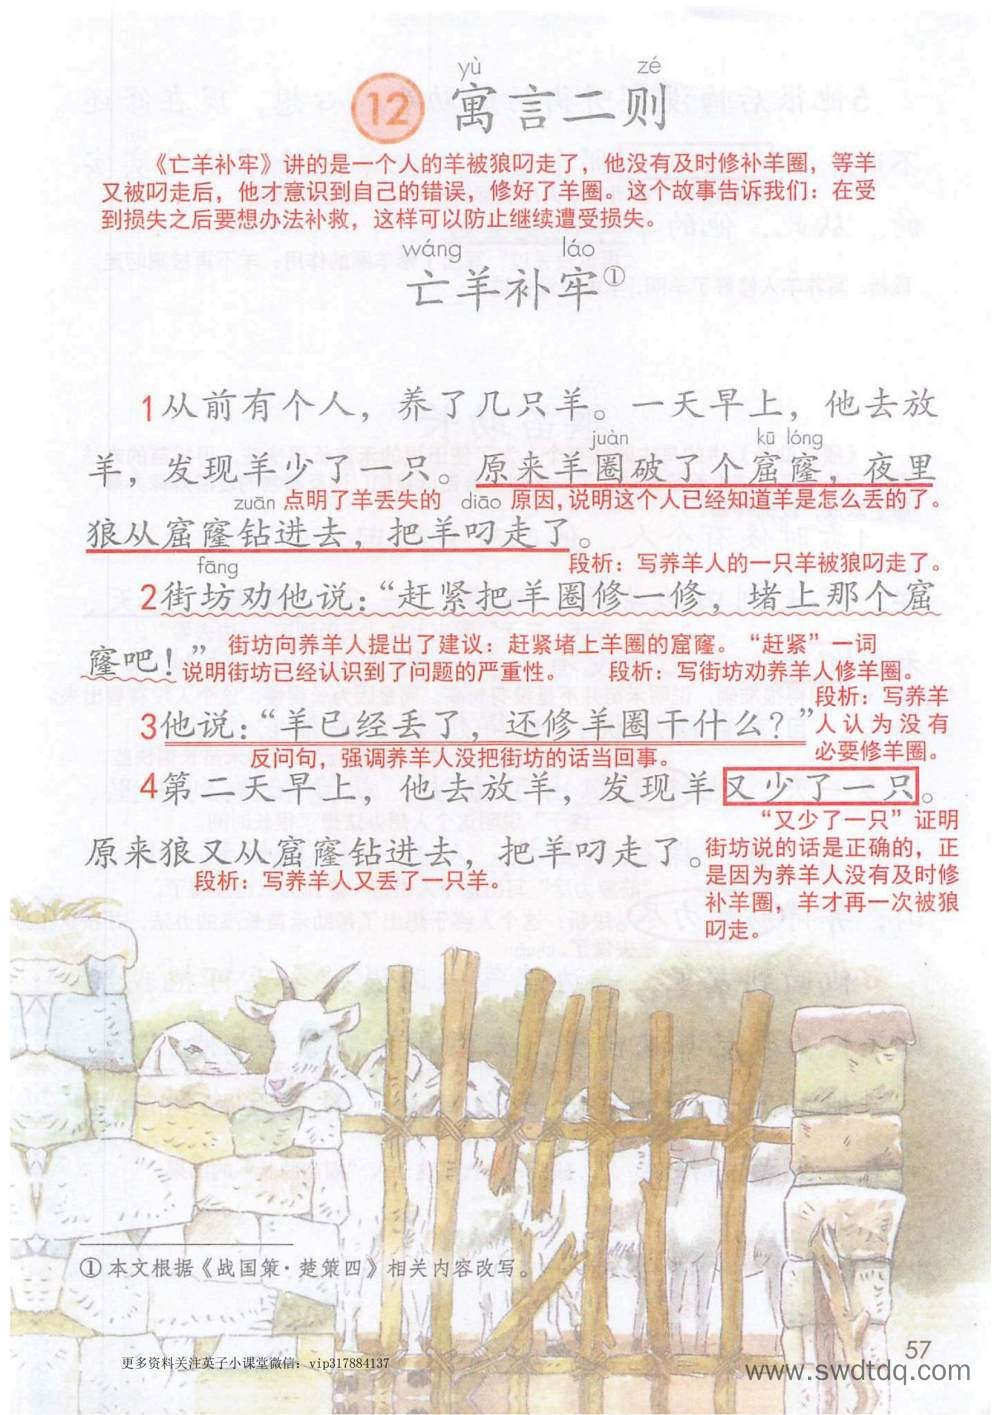 yù zé
12 寓言二则
《亡羊补牢》讲的是一个人的羊被狼叼走了，他没有及时修补羊圈，等羊
又被叼走后，他才意识到自己的错误，修好了羊圈。这个故事告诉我们：在受
到损失之后要想办法补救，这样可以防止继续遭受损失。
wáng láo
亡羊补牢①
1从前有个人，养了几只羊。一天早上，他去放
juàn kū lóng
羊，发现羊少了一只。原来羊圈破了个窟窿，夜里
zuān 点明了羊丢失的 diāo 原因，说明这个人已经知道羊是怎么丢的了。
狼从窟窿钻进去，把羊叼走了。
段析：写养羊人的一只羊被狼叼走了。
fāng
2街坊劝他说：“赶紧把羊圈修一修，堵上那个窟
窿吧！”
街坊向养羊人提出了建议：赶紧堵上羊圈的窟窿。“赶紧”一词
说明街坊已经认识到了问题的严重性。 段析：写街坊劝养羊人修羊圈。
3他说：“羊已经丢了，还修羊圈干什么？”
段析：写养羊
人认为没有
必要修羊圈。
反问句，强调养羊人没把街坊的话当回事。
4第二天早上，他去放羊，发现羊又少了一只。
原来狼又从窟窿钻进去，把羊叼走了。
段析：写养羊人又丢了一只羊。
“又少了一只”证明
街坊说的话是正确的，正
是因为养羊人没有及时修
补羊圈，羊才再一次被狼
叼走。
①本文根据《战国策·楚策四》相关内容改写。
57
更多资料关注英子小课堂微信：vip317884137
www.swdtdq.com